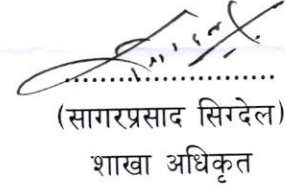 (सागरप्रसाद सिग्देल)
शाखा अधिकृत